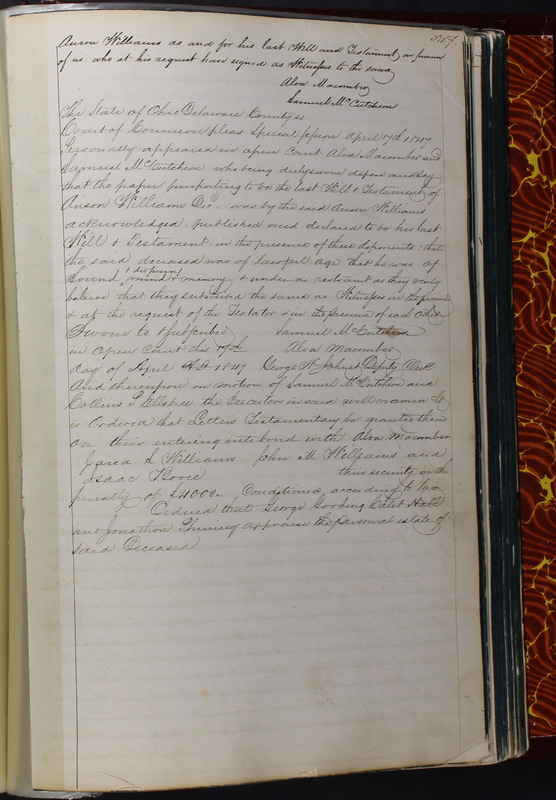 247.
Anson Williams as and for his last Will and Testament, in presence
of us who at his request have signed as Witnesses to the same
Alva Macomber
Samuel McCutcheon
The State of Ohio Delaware County ss
Court of Common pleas Special Session April 17th 1847
Personally appeared in open Court Alva Macomber and
Samuel McCutcheon who being duly sworn depose and say
that the paper purporting to be the last Will & Testament of
Anson Williams Decd, was by the said Anson Williams
acknowledged, published and declared to be his last
Will & Testament, in the presence of these deponents, that
the said deceased was of lawful age that he was of
Sound mind & disposing memory & under no restraint as they verily
believe that they subscribed the same as Witnesses in the presence
& at the request of the Testator & in the presence of each other
Sworn to & subscribed Samuel McCutcheon
in Open Court this 17th Alva Macomber
day of April AD 1847 George W Deputy Clerk
And thereupon on motion of Samuel McCutcheon and
Collins P Ellsbee the Executors in said will named It
is Ordered that Letters Testamentary be granted them
on their entering into bond with Alva Macomber
Jared L Williams John M Williams and
Isaac their security in the
penalty of $4000. Conditioned according to law
Ordered that George Gooding Caleb Hall
and Jonathan Phinney appraise the personal estate of
said Deceased